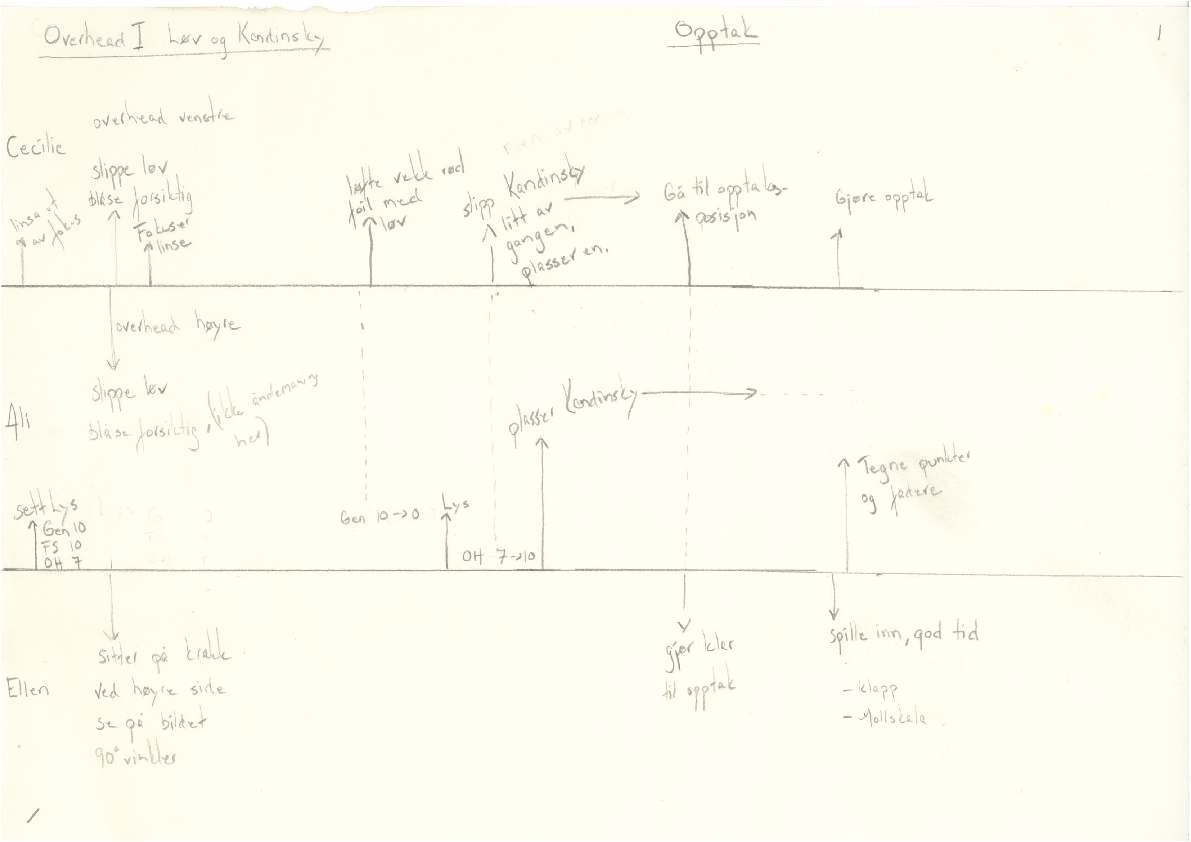 Overhead I Løv og Kandinsky
Opptak
1
Cecilie
overhead venstre
linsa ut
av fokus
slippe løv
blåse forsiktig
Fokuser
linse
løfte vekk rød
foil med
løv
slipp Kandinsky
litt av
gangen,
plasser en.
Gå til opptaks-
posisjon
Gjøre opptak
overhead høyre
Ali
slippe løv
blåse forsiktig, (ikke åndemaning
her)
plasser Kandinsky
Sett Lys
Gen 10
FS 10
OH 7
Gen 10→0
Lys
OH 7→10
Tegne punkter
og
Ellen
Sitter på krakk
ved høyre side
se på bildet
90° vinkler
gjør klar
til opptak
Spille inn, god tid
- klapp
- Mollskala